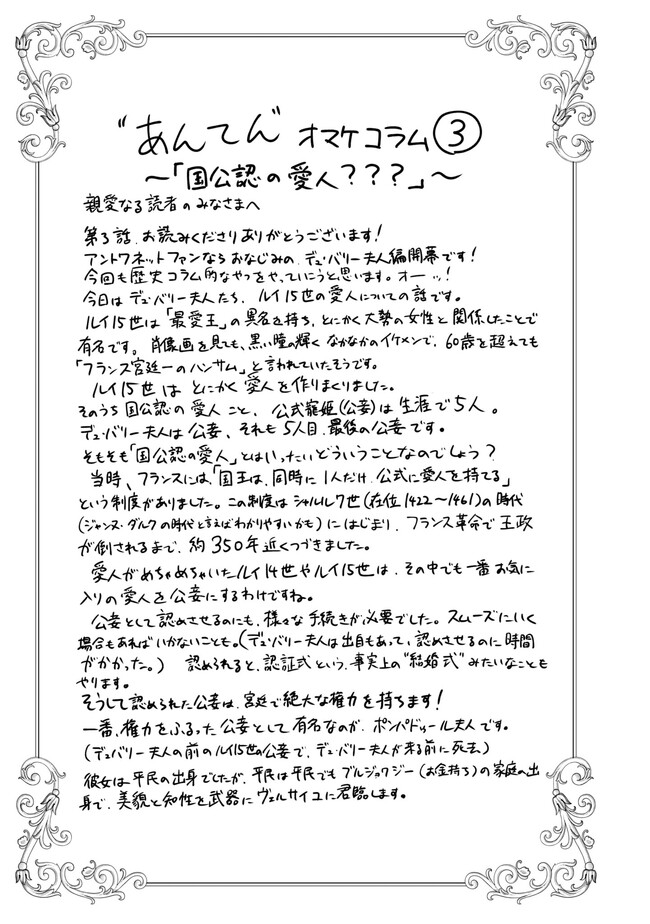 "あんてん" オマケコラム③
～「国公認の愛人？？？」～
親愛なる読者のみなさまへ
第3話、お読みくださりありがとうございます！
アントワネットファンならおなじみの、デュ・バリー夫人編開幕です！
今回も歴史コラム的なやつをやっていこうと思います。オーッ！
今日はデュ・バリー夫人たち、ルイ15世の愛人についての話です。
ルイ15世は「最愛王」の異名を持ち、とにかく大勢の女性と関係したことで
有名です。肖像画を見ても、黒い瞳の輝くなかなかのイケメンで、60歳を超えても
「フランス宮廷一のハンサム」と言われていたそうです。
ルイ15世はとにかく愛人を作りまくりました。
そのうち国公認の愛人こと、公式寵姫(公妾)は生涯で5人。
デュ・バリー夫人は公妾、それも5人目、最後の公妾です。
そもそも「国公認の愛人」とはいったいどういうことなのでしょう？
当時、フランスには「国王は、同時に1人だけ、公式に愛人を持てる」
という制度がありました。この制度はシャルル7世(在位1422～1461)の時代
(ジャンヌ・ダルクの時代と言えばわかりやすいかも)にはじまり、フランス革命で王政
が倒されるまで、約350年近くつづきました。
愛人がめちゃめちゃいたルイ14世やルイ15世は、その中でも一番お気に
入りの愛人を公妾にするわけですね。
公妾として認めさせるのにも、様々な手続きが必要でした。スムーズにいく
場合もあればいかないことも。(デュ・バリー夫人は出自もあって、認めさせるのに時間
がかかった。) 認められると、認証式という、事実上の"結婚式"みたいなことも
やります。
そうして認められた公妾は、宮廷で絶大な権力を持ちます！
一番、権力をふるった公妾として有名なのが、ポンパドゥール夫人です。
(デュ・バリー夫人の前のルイ15世の公妾で、デュ・バリー夫人が来る前に死去)
彼女は平民の出身でしたが、平民は平民でもブルジョワジー(お金持ち)の家庭の出
身で、美貌と知性を武器にヴェルサイユに君臨します。